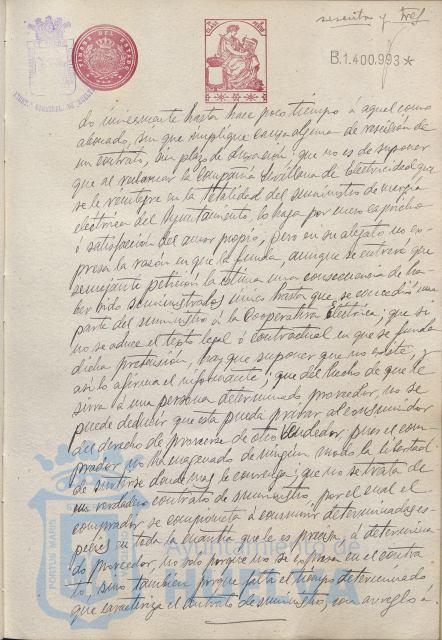 sesenta y tres
TIMBRE DEL ESTADO
B.1.400.993*
do únicamente hasta hace poco tiempo á aquel como
abonado, sin que implique causa alguna de rescisión de
un contrato, sin plazo de duración; que no es de suponer
que al reclamar la Compañía Sevillana de Electricidad que
se le reintegre en la totalidad del suministro de energía
eléctrica del Ayuntamiento, lo haga por mero capricho
ó satisfacción del amor propio, pero en su alegato no ex-
presa la razón en que la funda, aunque se entrevé que
semejante petición la estima una consecuencia de ha-
ber sido suministrador único hasta que se concedió una
parte del suministro á la Cooperativa Eléctrica; que si
no se aduce el texto legal ó contractual en que se funda
dicha pretensión, hay que suponer que no existe, y
así lo afirma el informante; que del hecho de que le
sirva á una persona determinado proveedor, no se
puede deducir que esta pueda privar al consumidor
del derecho de proveerse de otro vendedor, pues el com-
prador no ha enagenado de ningún modo la libertad
de surtirse donde más le convenga; que no se trata de
un verdadero contrato de suministro, por el cual el
comprador se comprometa á consumir determinada es-
pecie en toda la cuantía que le es precisa, á determina-
do proveedor, no solo porque no se expresa en el contra-
to, sino también porque falta el tiempo determinado
que caracteriza el contrato de suministro, con arreglo á
PORTUS MARIS
Ayuntamiento de
HUELVA